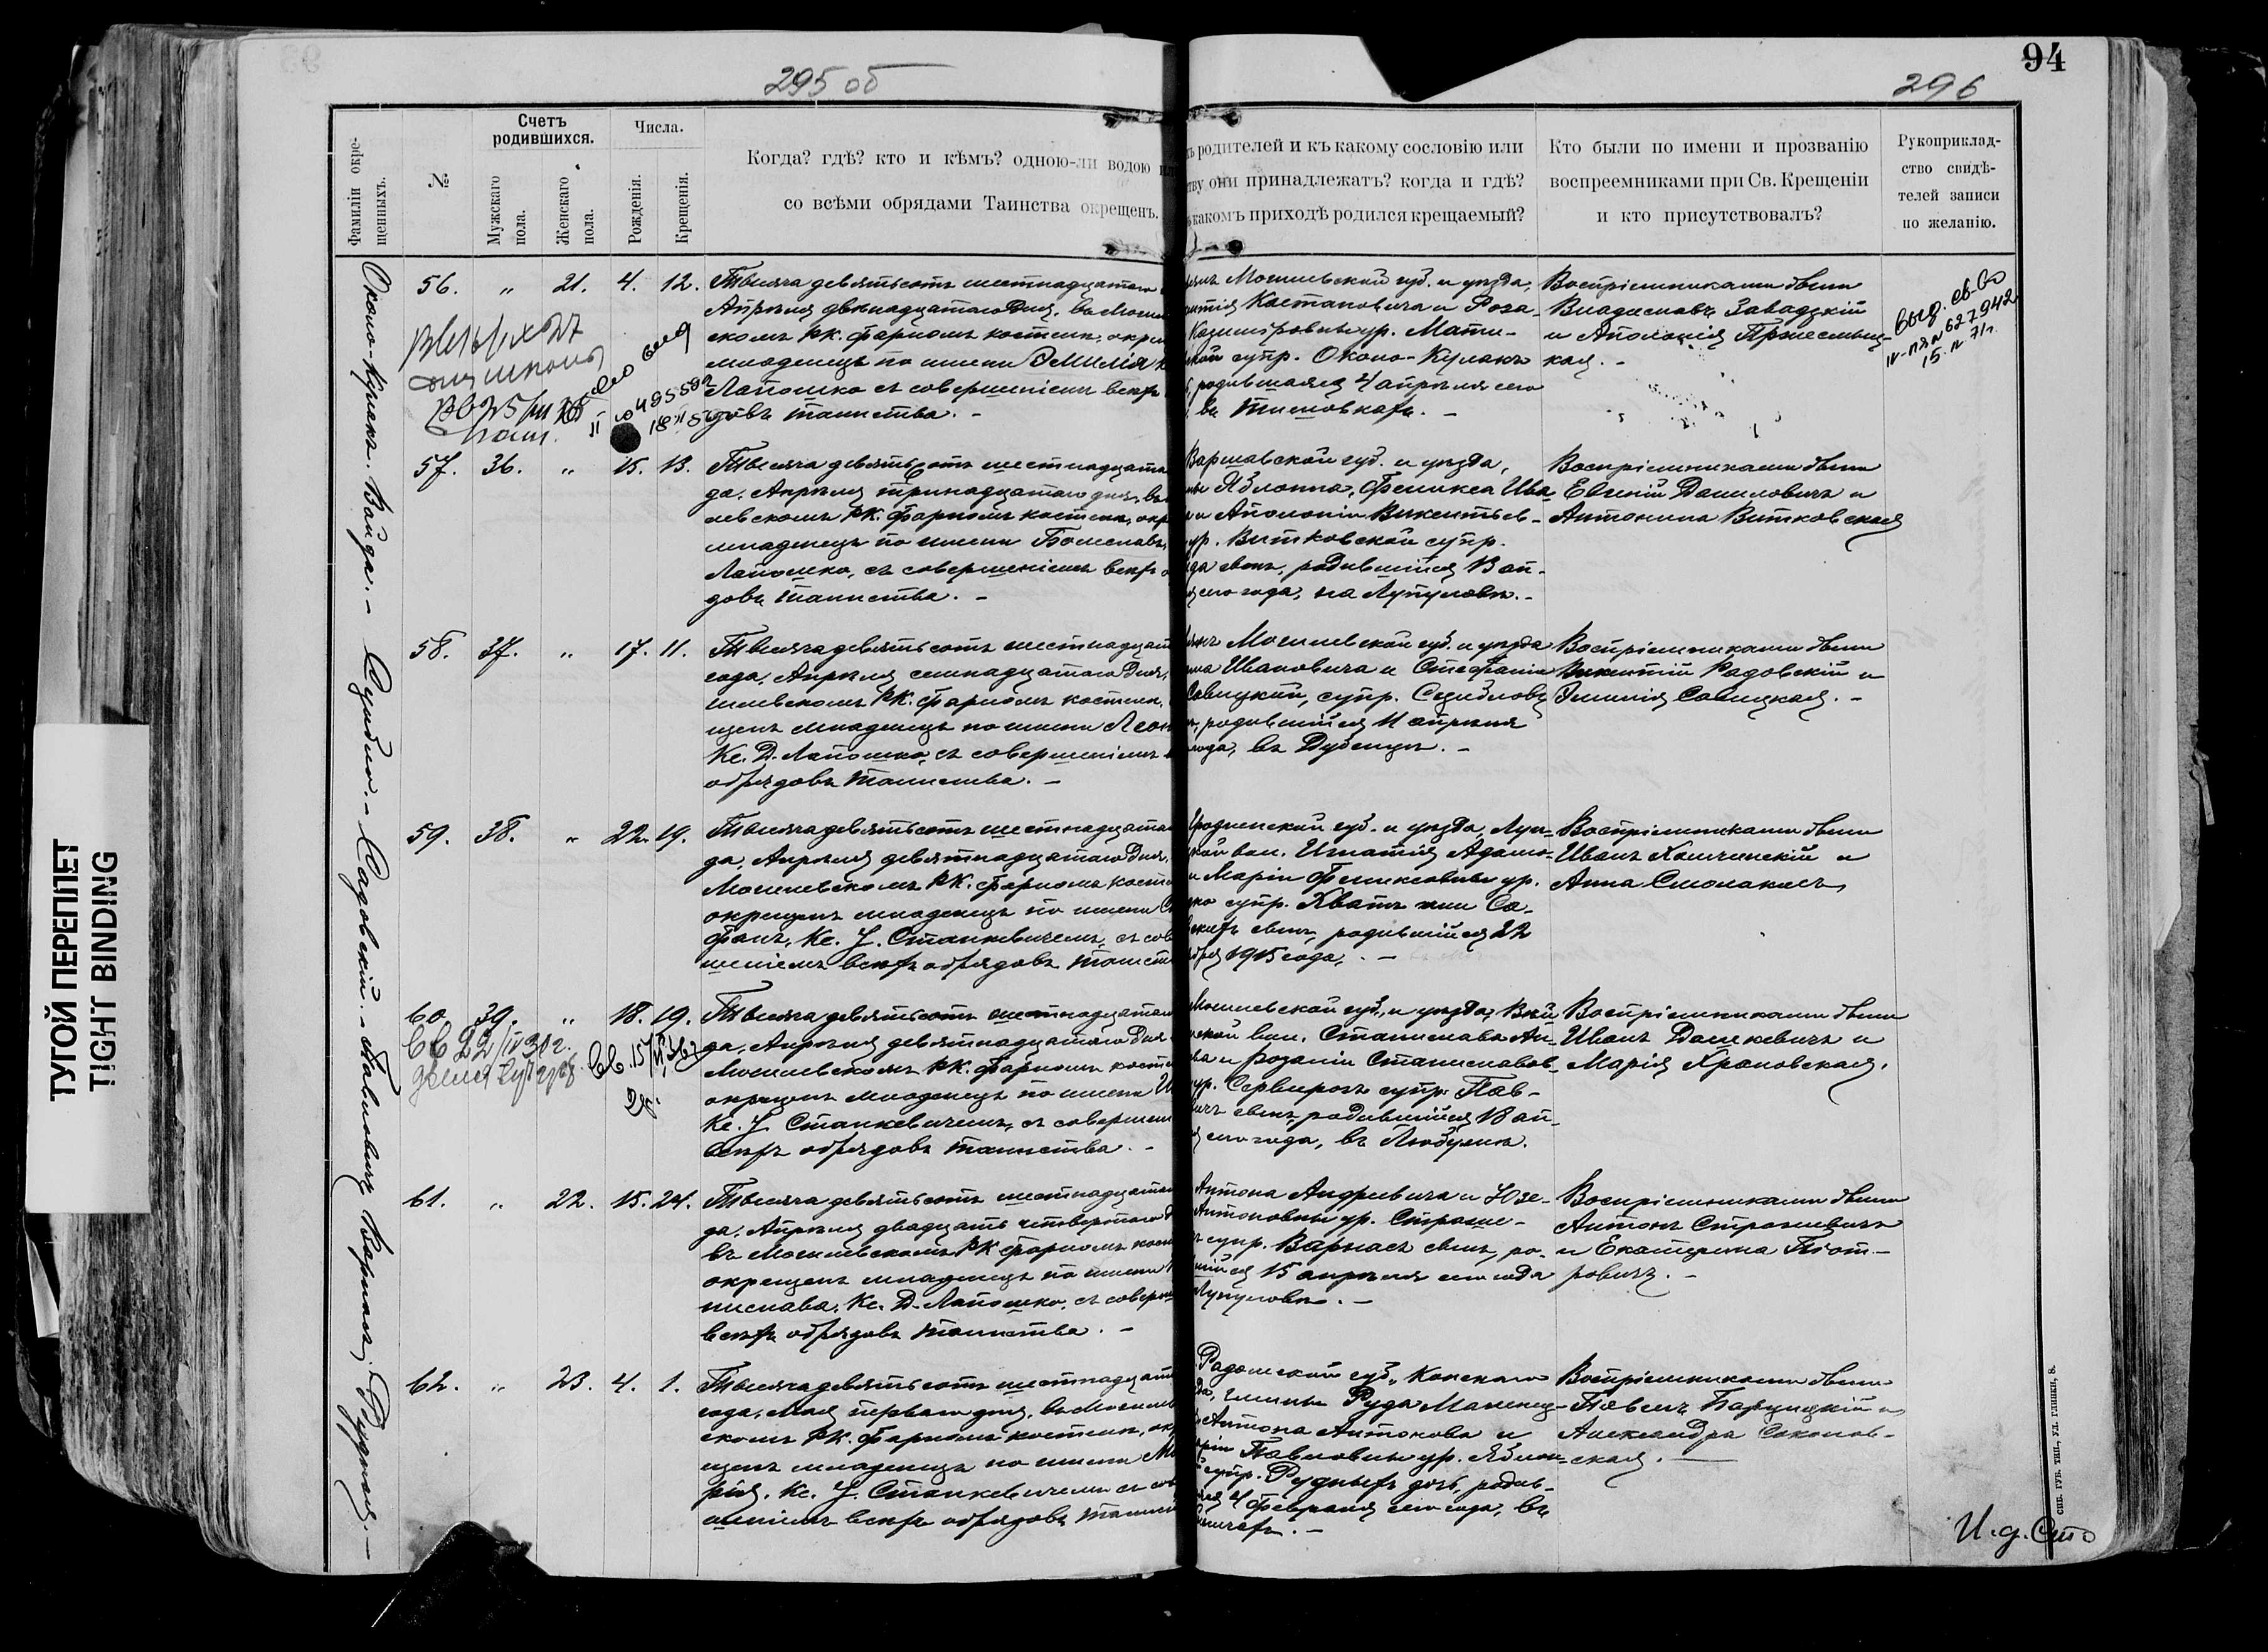 94
295 об
296
ТУГОЙ ПЕРЕПЛЕТ
TIGHT BINDING
Фамиліи окре-
щенныхъ.
№
Счетъ
родившихся.
Мужскаго
пола.
Женскаго
пола.
Числа.
Рожденія.
Крещенія.
Когда? гдѣ? кто и кѣмъ? одною-ли водою
со всѣми обрядами Таинства окрещенъ.
родителей и къ какому сословію или
они принадлежатъ? когда и гдѣ?
какомъ приходѣ родился крещаемый?
Кто были по имени и прозванію
воспреемниками при Св. Крещеніи
и кто присутствовалъ?
Рукоприклад-
ство свидѣ-
телей записи
по желанію.
Около-Кулакъ. Войда. – Сцибло. – Садовскій. – Павловичъ. Варнасъ. Рудная. –
56. " 21. 4. 12.
Тысяча девятьсотъ шестнадцатаго
Апрѣля двѣнадцатаго дня, въ Моги
скомъ РК. фарномъ костелѣ, окре
младенецъ по имени Эмилія
Лапошко съ совершеніемъ всѣхъ
довъ таинства. –
Могилевской губ. и уѣзда,
Костановича и Роза-
Казимировны ур. Мати-
супр. Около-Кулакъ
родившаяся 4 апрѣля сего
въ Тишовкахъ. –
Воспріемниками были
Владиславъ Завадзкій
и Аполонія Пржесмыц-
кая. –
выд. св-во
IV-ПЯ № 627942
15. IV 71 г.
57. 36. " 15. 13.
Тысяча девятьсотъ шестнадцата
да, Апрѣля тринадцатаго дня, въ
левскомъ РК. фарномъ костелѣ, окр
младенецъ по имени Болеславъ,
Лапошко, съ совершеніемъ всѣхъ о
довъ таинства. –
Варшавской губ. и уѣзда,
Яблонна, Феликса Ива-
и Аполоніи Викентьев-
ур. Витковской супр.
сынъ, родившійся 13 ап-
сего года, на Лупуловѣ. –
Воспріемниками были
Евгеній Даниловичъ и
Антонина Витковская
58. 37. " 17. 11.
Тысяча девятьсотъ шестнадцат
года, Апрѣля семнадцатаго дня,
гилевскомъ РК. фарномъ костелѣ,
щенъ младенецъ по имени Леон
Кс. Д. Лапошко, съ совершеніемъ
обрядовъ таинства. –
Могилевской губ. и уѣзда
Ивановича и Стефаніи
Савицкій, супр. Сцибловъ
родившійся 11 апрѣля
года, въ Дубенцѣ. –
Воспріемниками были
Викентій Радовскій и
Эмилія Савицкая. –
59. 38. " 22. 19.
Тысяча девятьсотъ шестнадцата
да, Апрѣля девятнадцатаго дня,
Могилевскомъ РК. фарномъ косте
окрещенъ младенецъ по имени С
фанъ, Кс. J. Станкевичемъ, съ сов
шеніемъ всѣхъ обрядовъ таинст
Гродненской губ. и уѣзда, Лун-
вол. Игнатія Адамо-
и Маріи Феликсовны ур.
супр. Хватъ или Са-
сынъ, родившійся 22
1915 года, . –
Воспріемниками были
Иванъ Хамчинскій и
Анна Смолакисъ
60. 39. " 18. 19.
Тысяча девятьсотъ шестнадцатаго
да, Апрѣля девятнадцатаго дня
Могилевскомъ РК. фарномъ косте
окрещенъ младенецъ по имени
Кс. J. Станкевичемъ, съ совершен
всѣхъ обрядовъ таинства. –
Могилевской губ. и уѣзда,
вол. Станислава Ан-
и Розаліи Станиславов-
ур. Сервирогъ супр. Пав-
сынъ, родившійся 18 ап-
сего года, въ Любужѣ.
Воспріемниками были
Иванъ Дашкевичъ и
Марія Храповская.
61. " 22. 15. 24.
Тысяча девятьсотъ шестнадцатаго
да, Апрѣля двадцать четвертаго
въ Могилевскомъ РК фарномъ кост
окрещенъ младенецъ по имени
нислава, Кс. Д. Лапошко, съ соверш
всѣхъ обрядовъ таинства. –
Антона Андреевича и Юзе-
Антоновны ур. Страше-
супр. Варнасъ сынъ, ро-
15 апрѣля сего года
Лупуловѣ. –
Воспріемниками были
Антонъ Страшевичъ
и Екатерина Піот-
ровичъ. –
62. " 23. 4. 1.
Тысяча девятьсотъ шестнадцат
года, Мая перваго дня, въ Могилев
скомъ РК. фарномъ костелѣ, ок
щенъ младенецъ по имени Ма
рія, Кс. J. Станкевичемъ съ сов
шеніемъ всѣхъ обрядовъ таинст
Радомской губ., Конскаго
гмины Руда Маленец-
Антона Антонова и
Павловны ур. Яблон-
супр. Рудныхъ дочь, родив-
4 февраля сего года, въ
Воспріемниками были
Павелъ Барщицкій и
Александра Соколов-
ская. –
СПБ. ГУБ. ТИП., УЛ. ГЛИНКИ, 8.
И. д. Сто